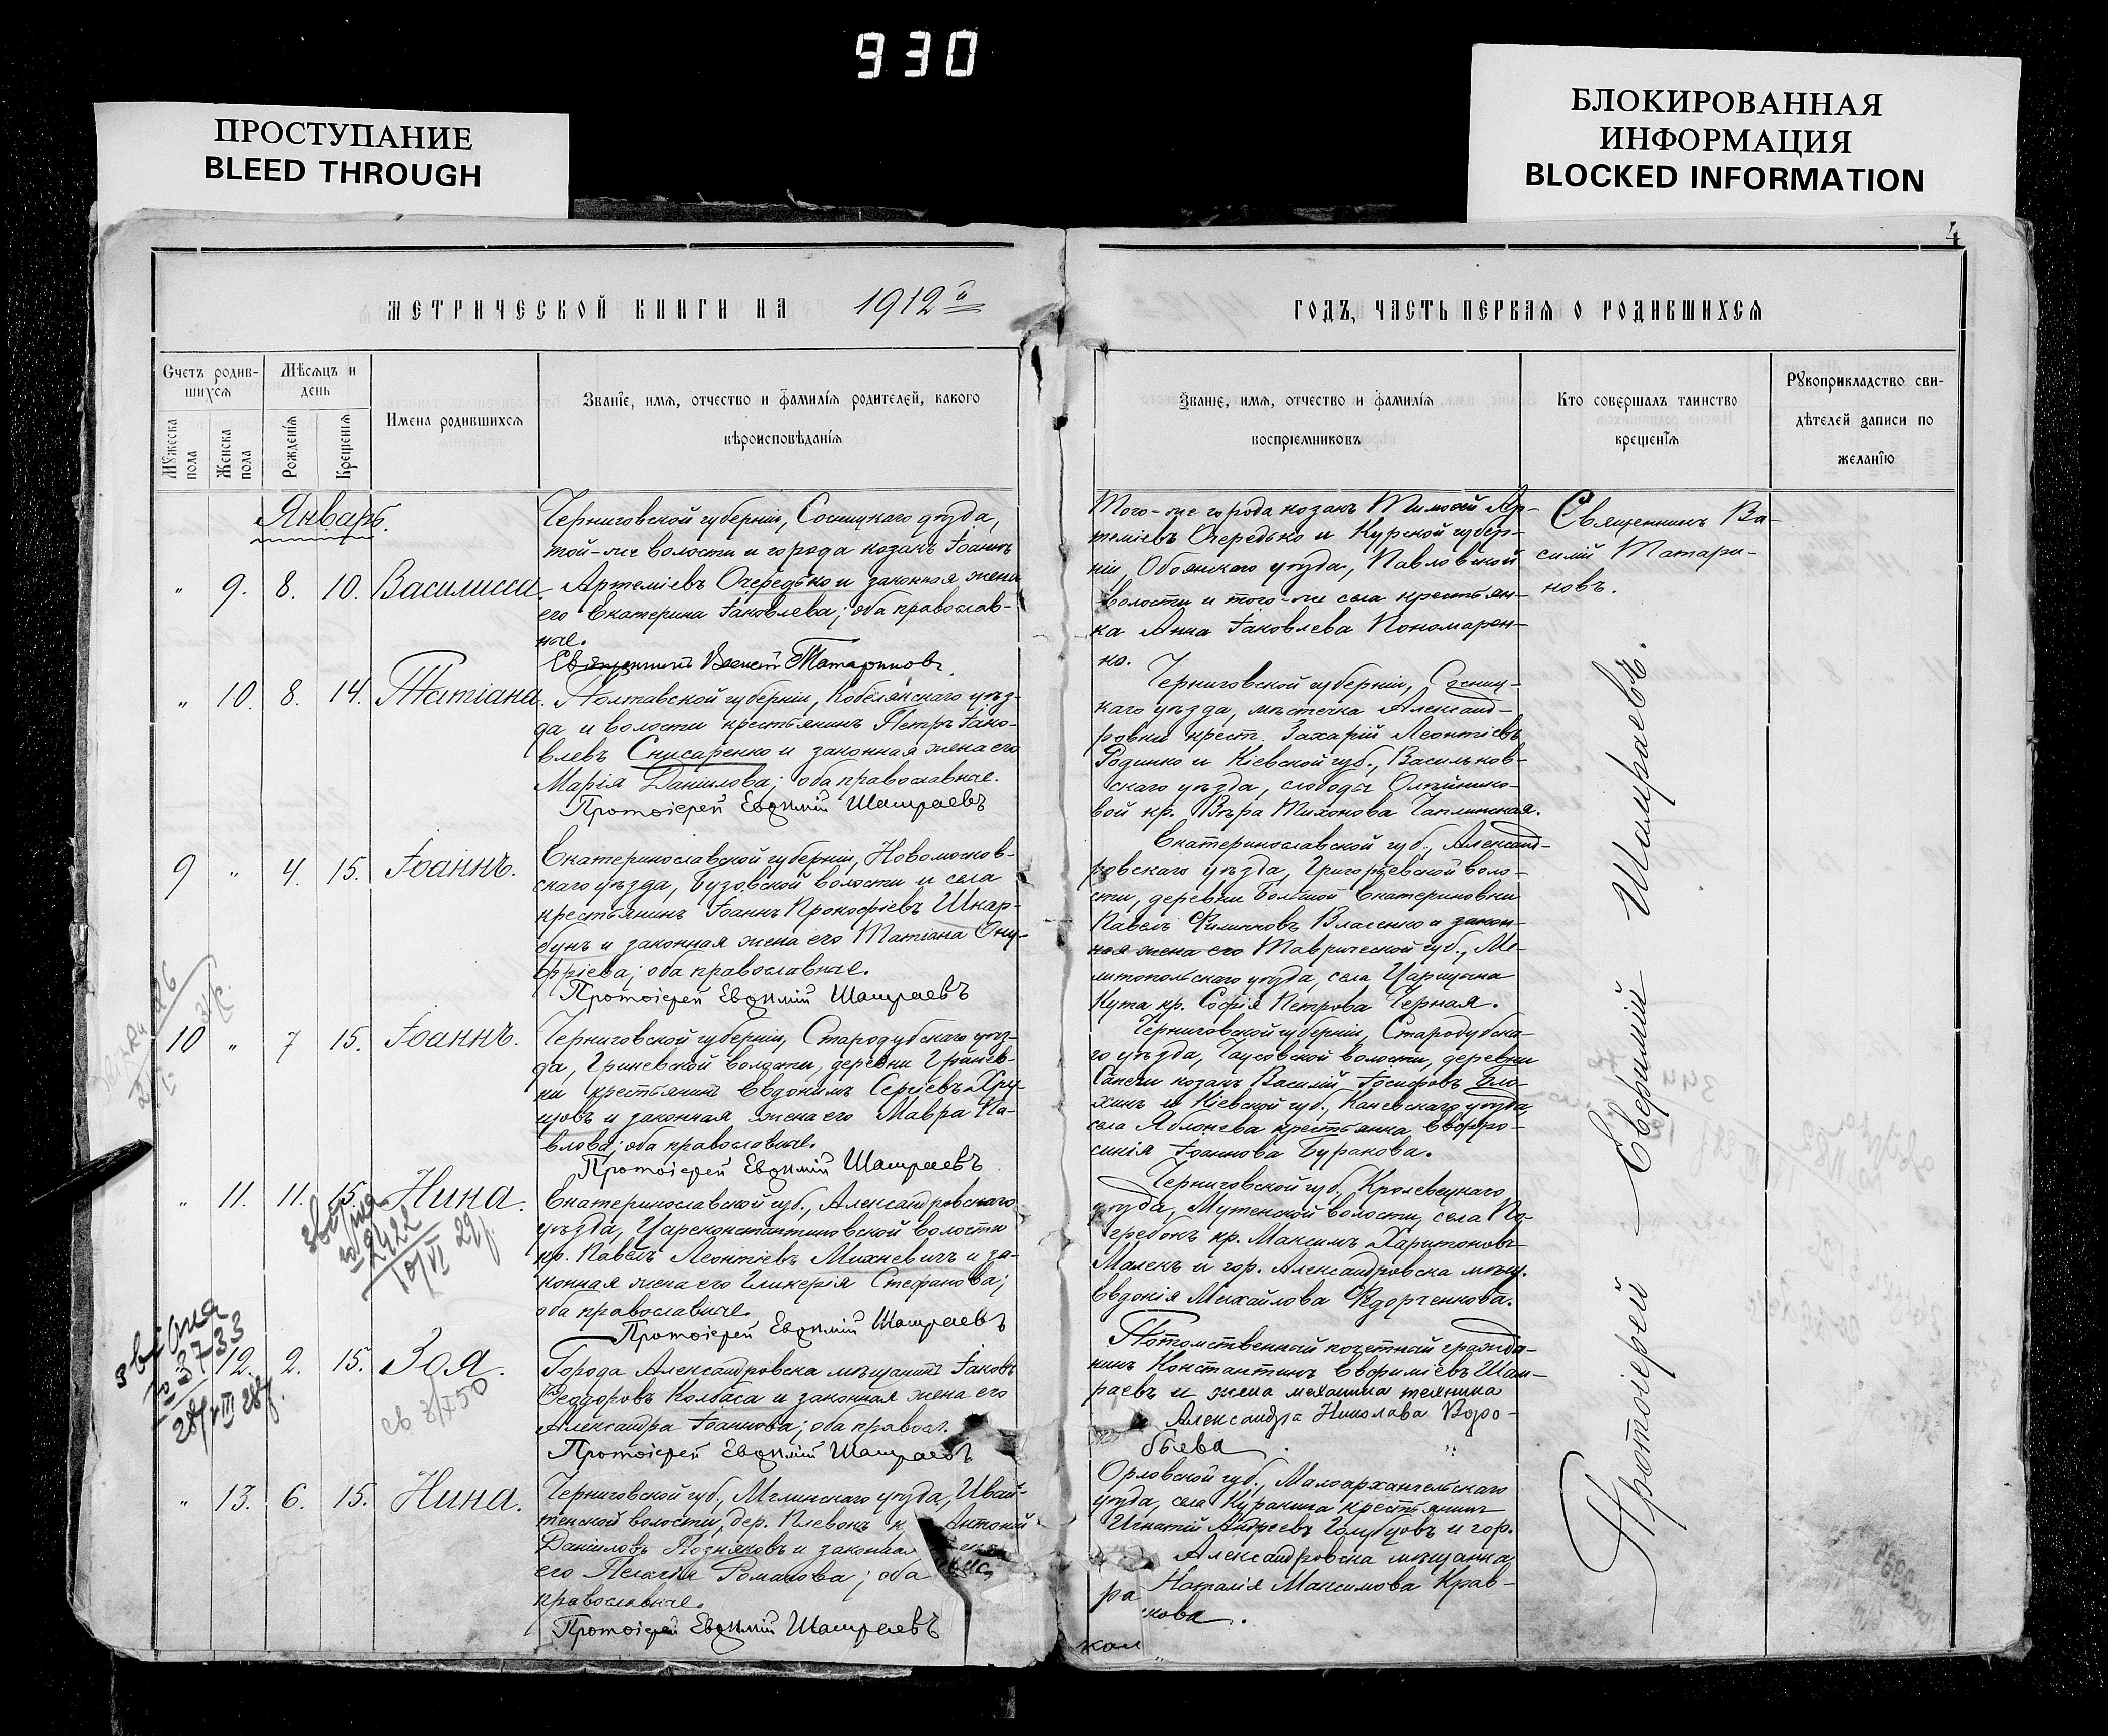 930
ПРОСТУПАНИЕ
BLEED THROUGH
БЛОКИРОВАННАЯ
ИНФОРМАЦИЯ
BLOCKED INFORMATION
4
МЕТРИЧЕСКОЙ КНИГИ НА 1912й
ГОДЪ, ЧАСТЬ ПЕРВАЯ О РОДИВШИХСЯ
Счетъ родив-
шихся
Мужеска пола
Женска пола
Мѣсяцъ и
день
Рожденія
Крещенія
Имена родившихся
Званіе, имя, отчество и фамилія родителей, какого
вѣроисповѣданія
Званіе, имя, отчество и фамилія
воспріемниковъ
Кто совершалъ таинство
крещенія
Рукоприкладство сви-
дѣтелей записи по
желанію
Январь.
" 9. 8. 10. Василисса
Черниговской губерніи, Сосницкаго уѣзда,
той-же волости и города козакъ Іоаннъ
Артеміевъ Очередько и законная жена
его Екатерина Іаковлева; оба православ-
ные.
Священникъ Василій Татариновъ.
Того-же города козакъ Тимоѳей Ар-
теміевъ Очередько и Курской губер-
ніи, Обоянскаго уѣзда, Павловской
волости и того-же села крестьян-
ка Анна Іаковлева Пономарен-
ко.
Священникъ Ва-
силій Татари-
новъ.
" 10. 8. 14. Татіана.
Полтавской губерніи, Кобелякскаго уѣз-
да и волости крестьянинъ Петръ Іако-
влевъ Снисаренко и законная жена его
Марія Даніилова; оба православные.
Протоіерей Евѳимій Шамраевъ
Черниговской губерніи, Сосниц-
каго уѣзда, мѣстечка Александ-
ровки крест. Захарій Леонтіевъ
Родинко и Кіевской губ., Васильков-
скаго уѣзда, слободы Олейнико-
вой кр. Вѣра Тихонова Чаплинская.
9 " 4. 15. Іоаннъ.
Екатеринославской губерніи, Новомосков-
скаго уѣзда, Бузовской волости и села
крестьянинъ Іоаннъ Прокофіевъ Шкар-
бунъ и законная жена его Татіана Ону-
фріева; оба православные.
Протоіерей Евѳимій Шамраевъ
Екатеринославской губ., Александ-
ровскаго уѣзда, Григорьевской воло-
сти, деревни Большой Екатериновки
Павелъ Филипповъ Власенко и закон-
ная жена его Таврической губ., Ме-
литопольскаго уѣзда, села Царицына
Кута кр. Софія Петрова Черная.
10 " 7 15. Іоаннъ.
Черниговской губерніи, Стародубскаго уѣз-
да, Гриневской волости, деревни Гринев-
ки крестьянинъ Евдокимъ Сергіевъ Хру-
щовъ и законная жена его Мавра Па-
влова; оба православные.
Протоіерей Евѳимій Шамраевъ
Черниговской губерніи, Стародубска-
го уѣзда, волости, деревни
козакъ Василій Іосифовъ Бло-
хинъ и Кіевской губ., Каневскаго уѣзда,
села Яблонева крестьянка Евфро-
синія Іоаннова Буракова.
" 11. 11. 15. Нина.
2422
10/VI 29 р.
Екатеринославской губ., Александровскаго
уѣзда, Цареконстантиновской волости
кр. Павелъ Леонтіевъ Михневичъ и за-
конная жена его Гликерія Стефанова;
оба православные.
Протоіерей Евѳимій Шамраевъ
Черниговской губ., Кролевецкаго
уѣзда, Мутенской волости, села По-
гребокъ кр. Максимъ Харитоновъ
Малекъ и гор. Александровска мѣщ.
Евдокія Михайлова Ѳедорченкова.
" 12. 2. 15. Зоя.
3733
28/VIII 28р.
св 8/X50
Города Александровска мѣщанинъ Іаковъ
Ѳеодоровъ Колбаса и законная жена его
Александра Іоаннова; оба правосл.
Протоіерей Евѳимій Шамраевъ
Потомственный почетный гражда-
нинъ Константинъ Евфиміевъ Шам-
раевъ и жена механика техника
Александра Николаева Воро-
бьева
" 13. 6. 15. Нина.
Черниговской губ., Мглинскаго уѣзда, Ивай-
тенской волости, дер. Плевокъ к Антоній
Даніиловъ Поздняковъ и законная
его Пелагія Романова; оба
православные.
Протоіерей Евѳимій Шамраевъ
Орловской губ., Малоархангельскаго
уѣзда, села Куракина крестьянинъ
Игнатій Андреевъ Голубцовъ и гор.
Александровска мѣщанка
Наталія Максимова Крав-
кова.
ра
Протоіерей Евфимій Шамраевъ.